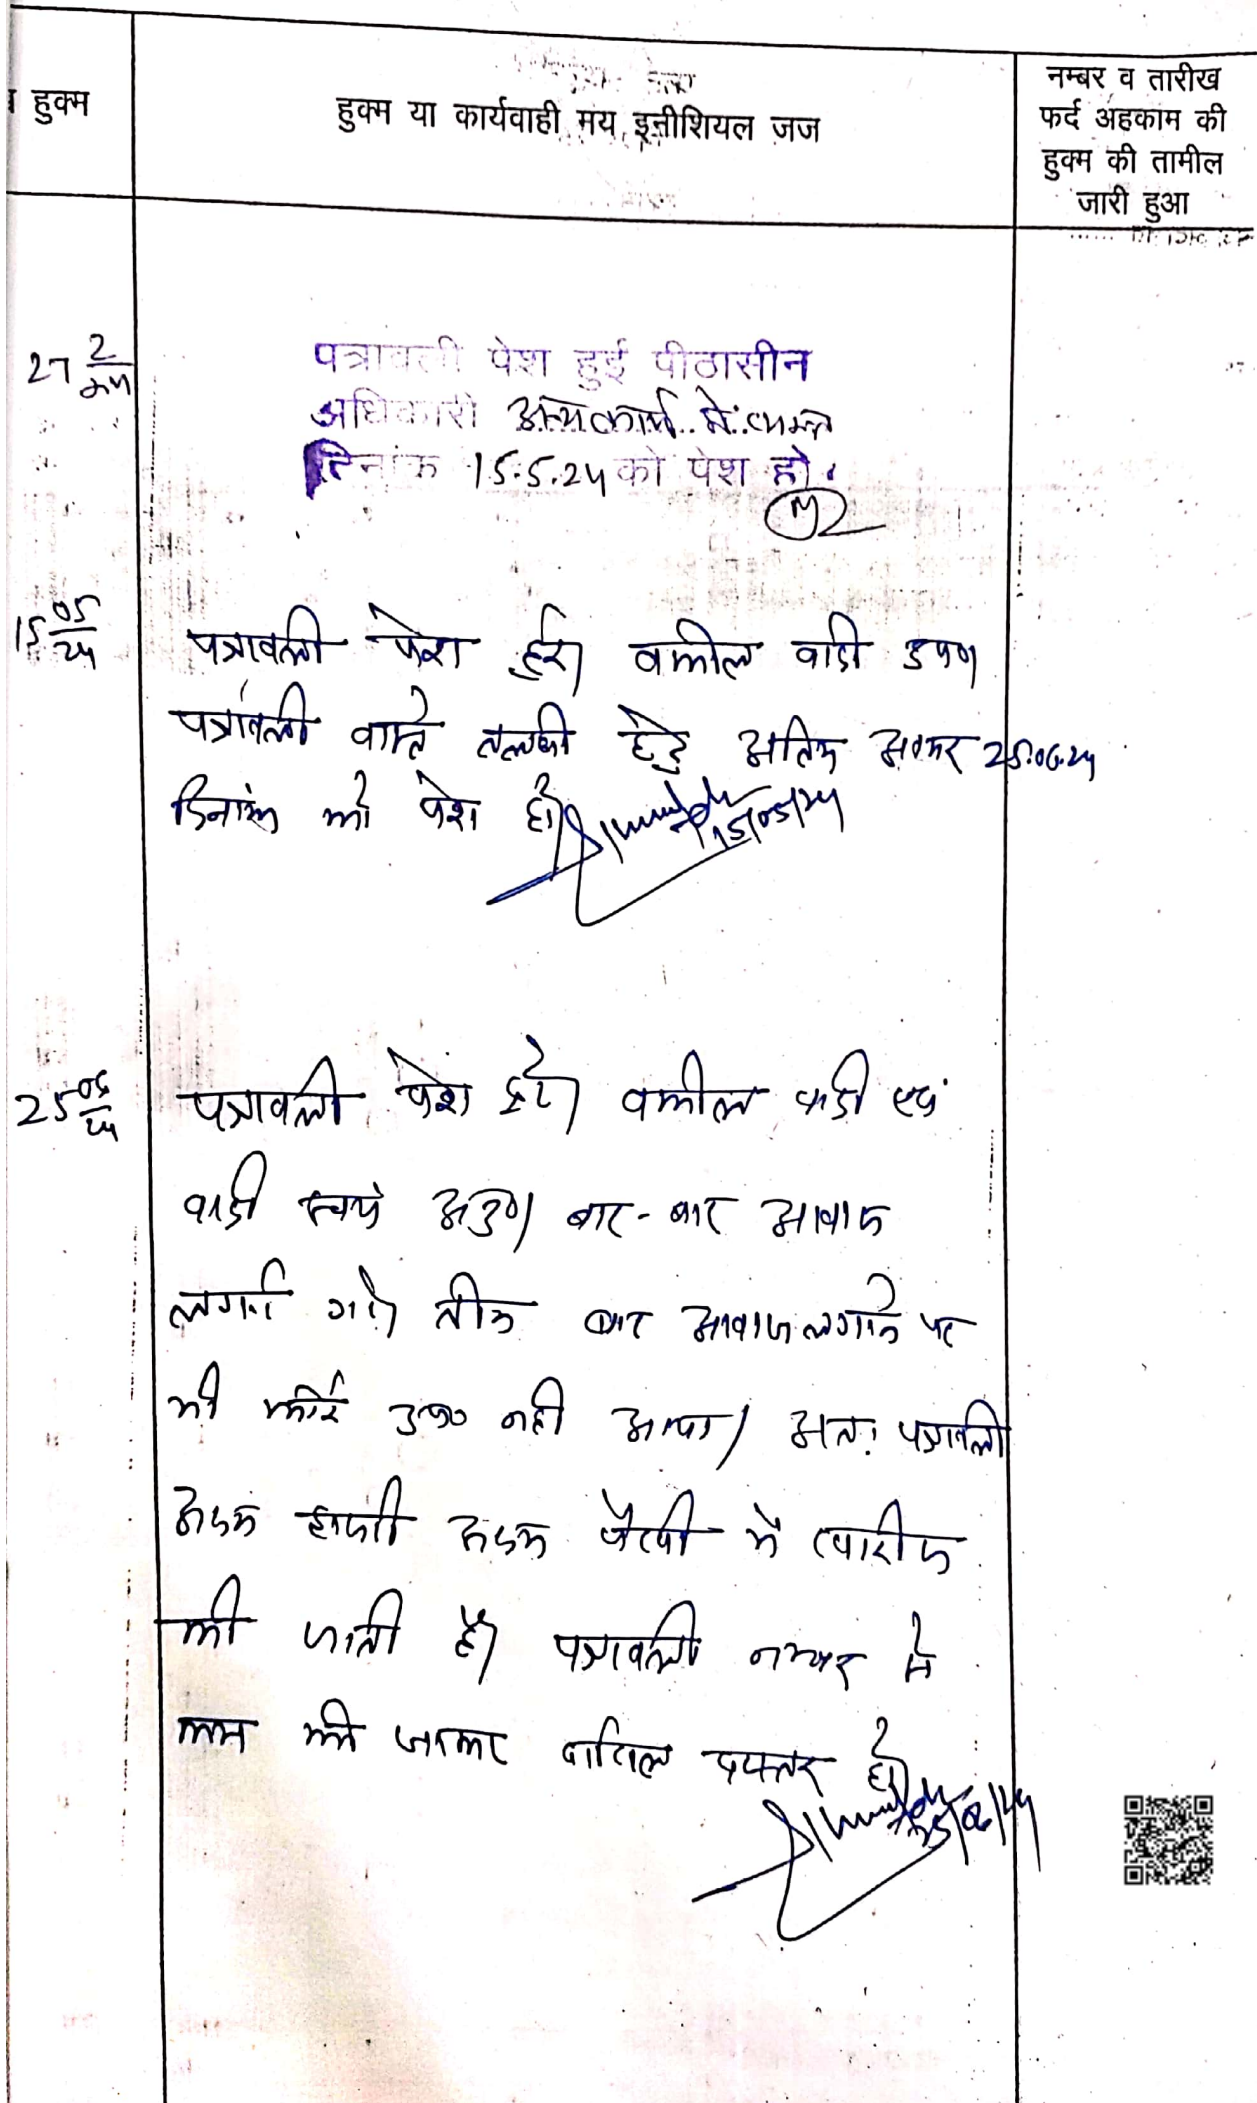 हुक्म
हुक्म या कार्यवाही मय इनीशियल जज
नम्बर व तारीख
फर्द अहकाम की
हुक्म की तामील
जारी हुआ
27 2/24
पत्रावली पेश हुई पीठासीन
अधिकारी अन्य कार्य में व्यस्त
दिनांक 15.5.24 को पेश हो.
15 05/24
पत्रावली पेश हुई। वकील वादी उप०
पत्रावली वास्ते तलबी हेतु अंतिम अवसर 25.06.24
दिनांक को पेश हो।
15/05/24
25 06/24
पत्रावली पेश हुई। वकील वादी एवं
वादी स्वयं अनु०। बार-बार आवाज
लगाई गई। तीन बार आवाज लगाने पर
भी कोई उप० नहीं आया। अतः पत्रावली
अदम हाजरी अदम पैरवी में खारीज
की जाती है। पत्रावली नम्बर से
कम की जाकर दाखिल दफ्तर हो।
25/06/24